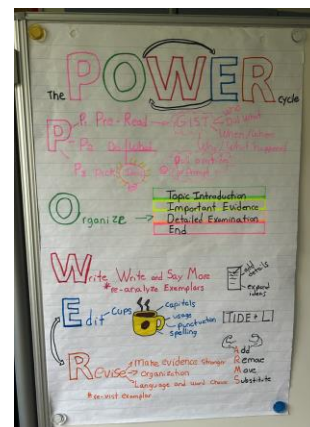 The POWER cycle
P
P1 Pre-Read
GIST
who
Did what
When/where
Why
what happened
P2
P3
Organize
Topic Introduction
Important Evidence
Detailed Examination
End
Write Write and Say More
*re-analyze Exemplars
add details
expand ideas
Edit
CUPS
capitals
usage
punctuation
spelling
TIDE + L
Revise
Make evidence stronger
Organization
Language and word choice
*Re-visit exemplar
Add
Remove
Move
Substitute